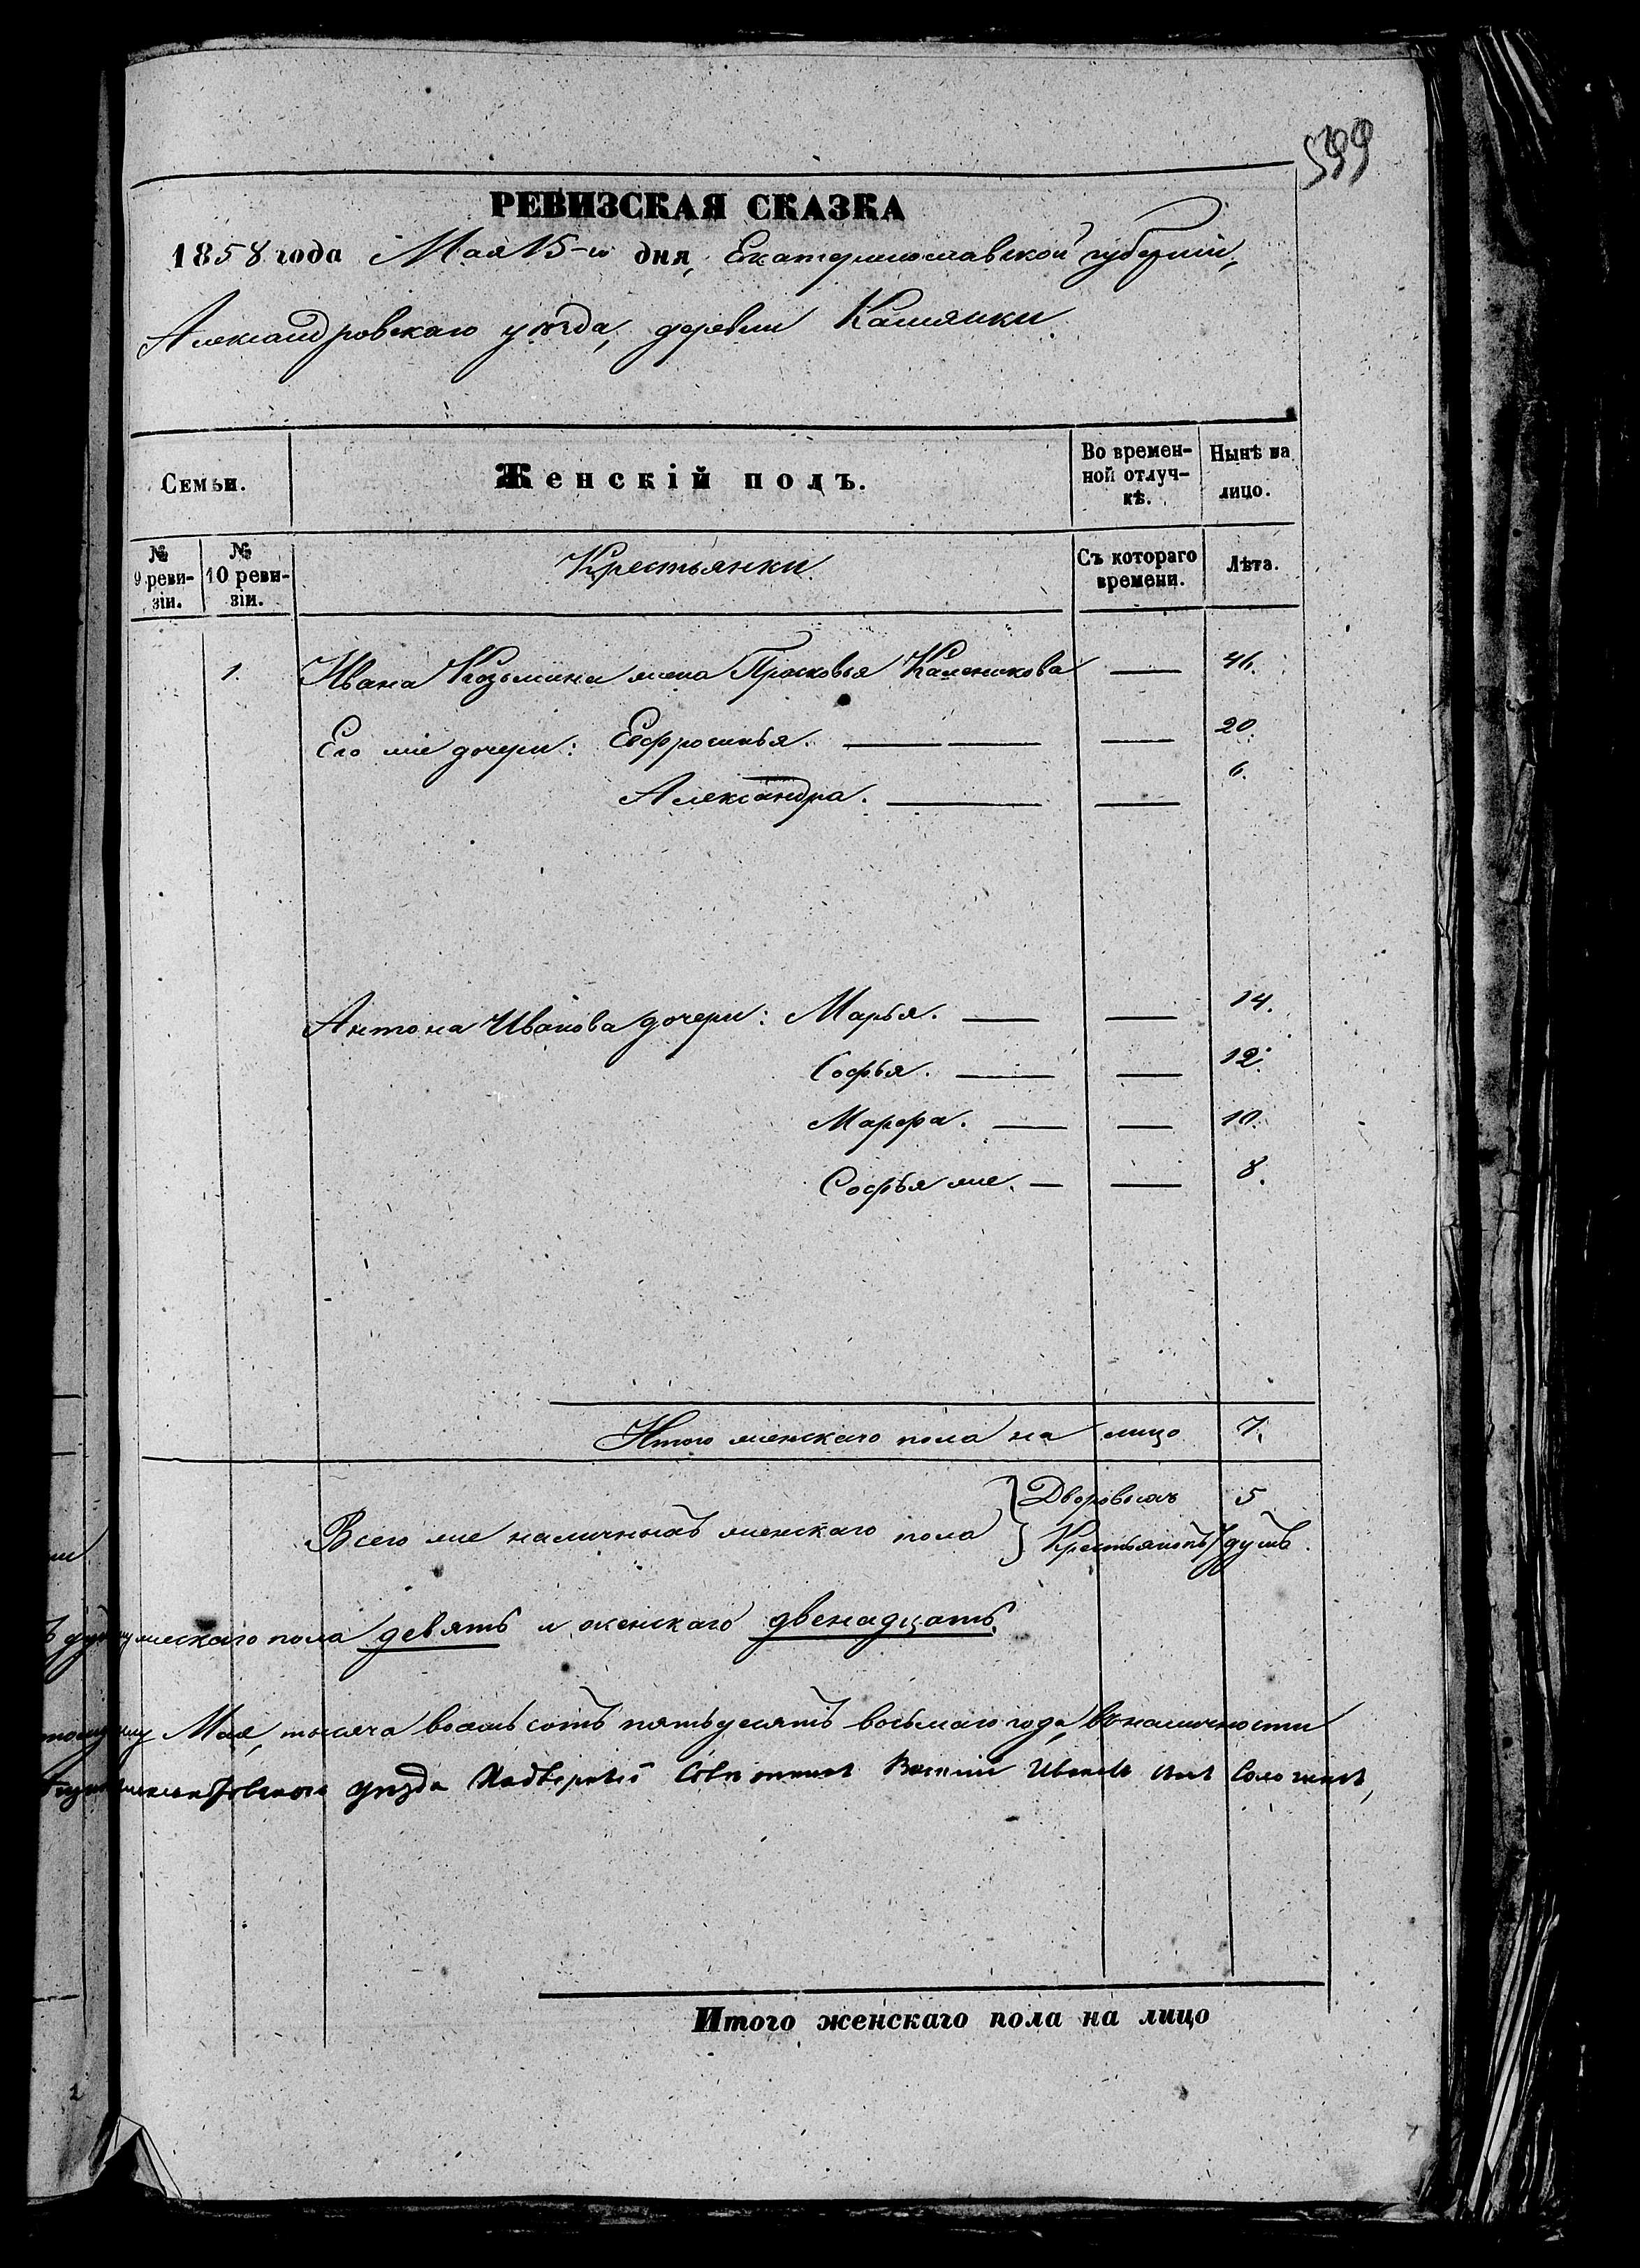 599
РЕВИЗСКАЯ СКАЗКА
1858 года Мая 15-го дня, Екатеринославской губерніи,
Александровскаго уѣзда, деревни Камянки.
Семьи.
Женскій полъ.
Во времен-
ной отлуч-
кѣ.
Нынѣ на
лицо.
№
9 реви-
зіи.
№
10 реви-
зіи.
Крестьянки
Съ котораго
времени.
Лѣта.
1. Ивана Козьмина жена Прасковья Каленикова — 46.
Его же дочери: Евфросинья. — — — 20.
Александра. — — 6.
Антона Иванова дочери: Марья. — — 14.
Софья. — — 12.
Марфа. — — 10.
Софья же. — — 8.
Итого женскаго пола на лицо 7.
Всего же наличныхъ женскаго пола } Дворовыхъ 5
Крестьянокъ 7 душъ.
мужескаго пола девять и женскаго двенадцать.
Мая, тысяча восемьсотъ пятьдесятъ восьмаго года, въ наличности
уѣзда Надворный Совѣтникъ Василій Ивановъ сынъ
Итого женскаго пола на лицо